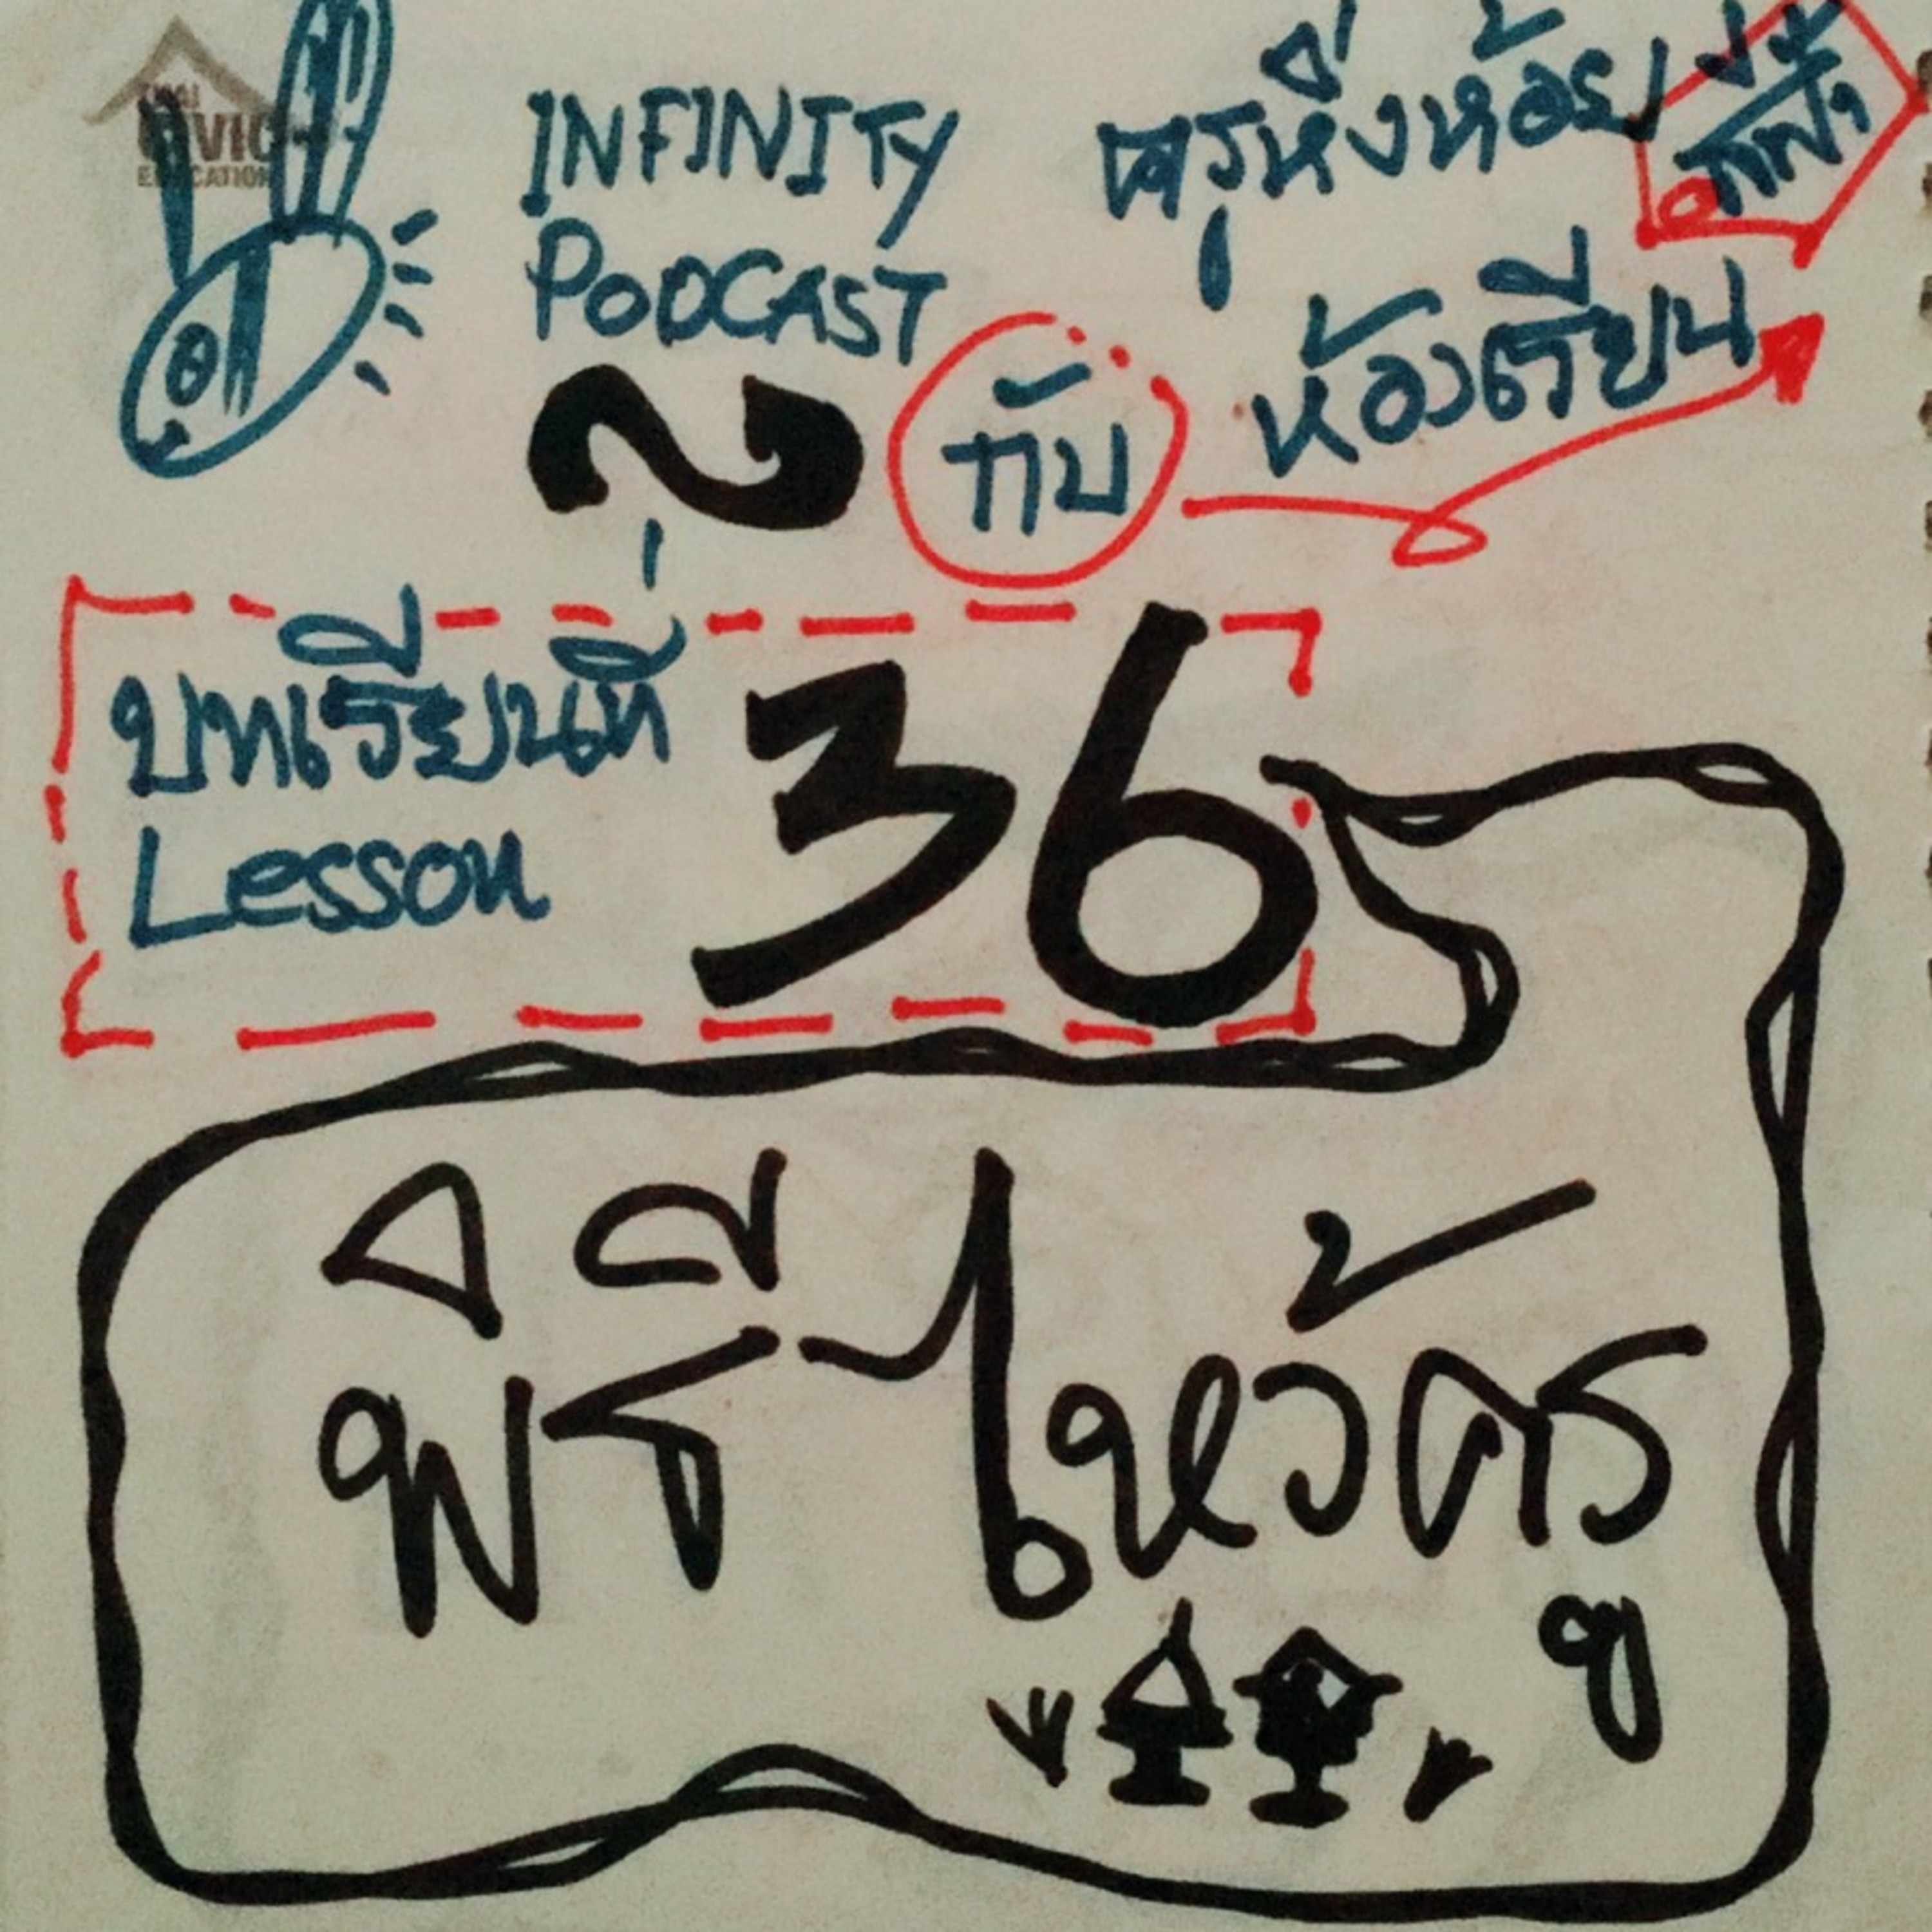 THAI
CIVIC
EDUCATION
INFINITY
PODCAST
ครูหิ่งห้อย
2 กับ
ห้องเรียน
บทเรียนที่
Lesson
36
พิธีไหว้ครู